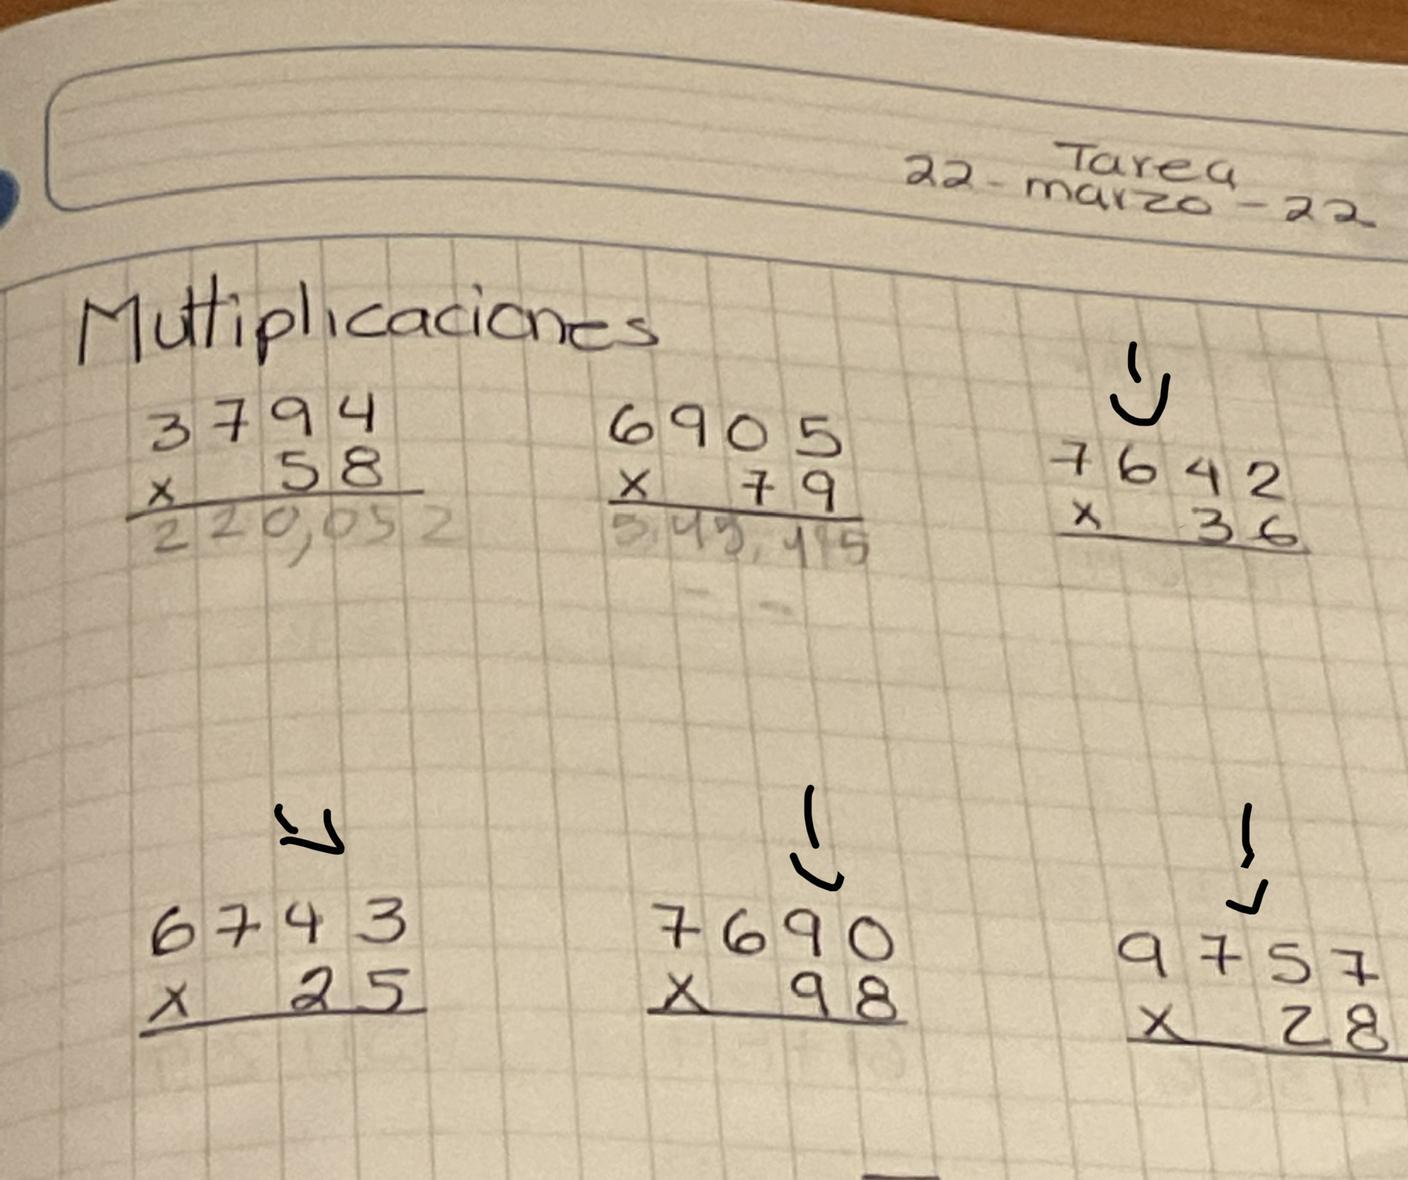 Tarea
22-marzo-22
Multiplicaciones
3794
x 58
220,052
6905
x 79
7642
x 36
6743
x 25
7690
x 98
9757
x 28